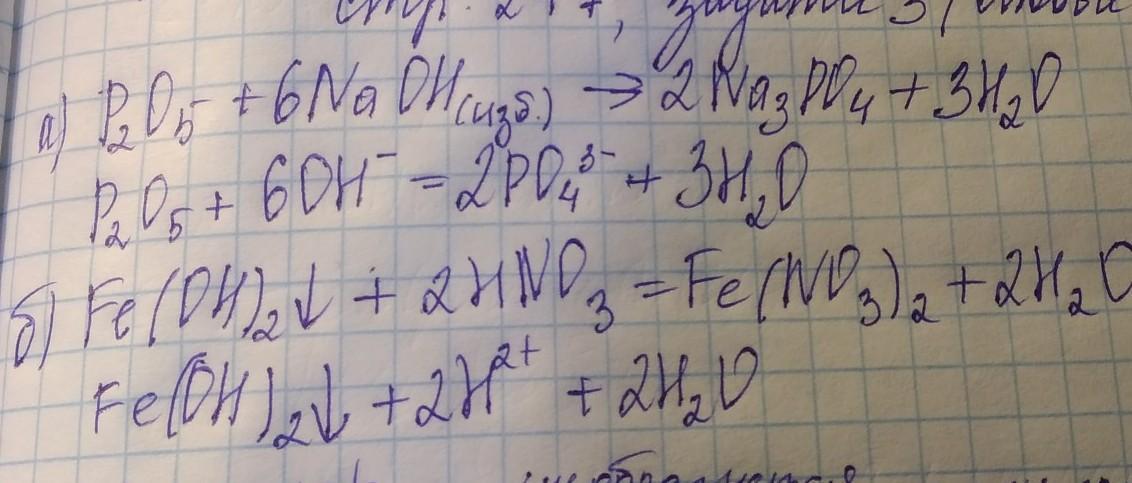 стр. 2
а) P₂O₅ + 6NaOH(изб.) → 2Na₃PO₄ + 3H₂O
P₂O₅ + 6OH⁻ = 2PO₄³⁻ + 3H₂O
б) Fe(OH)₂↓ + 2HNO₃ = Fe(NO₃)₂ + 2H₂O
Fe(OH)₂↓ + 2H²⁺ + 2H₂O